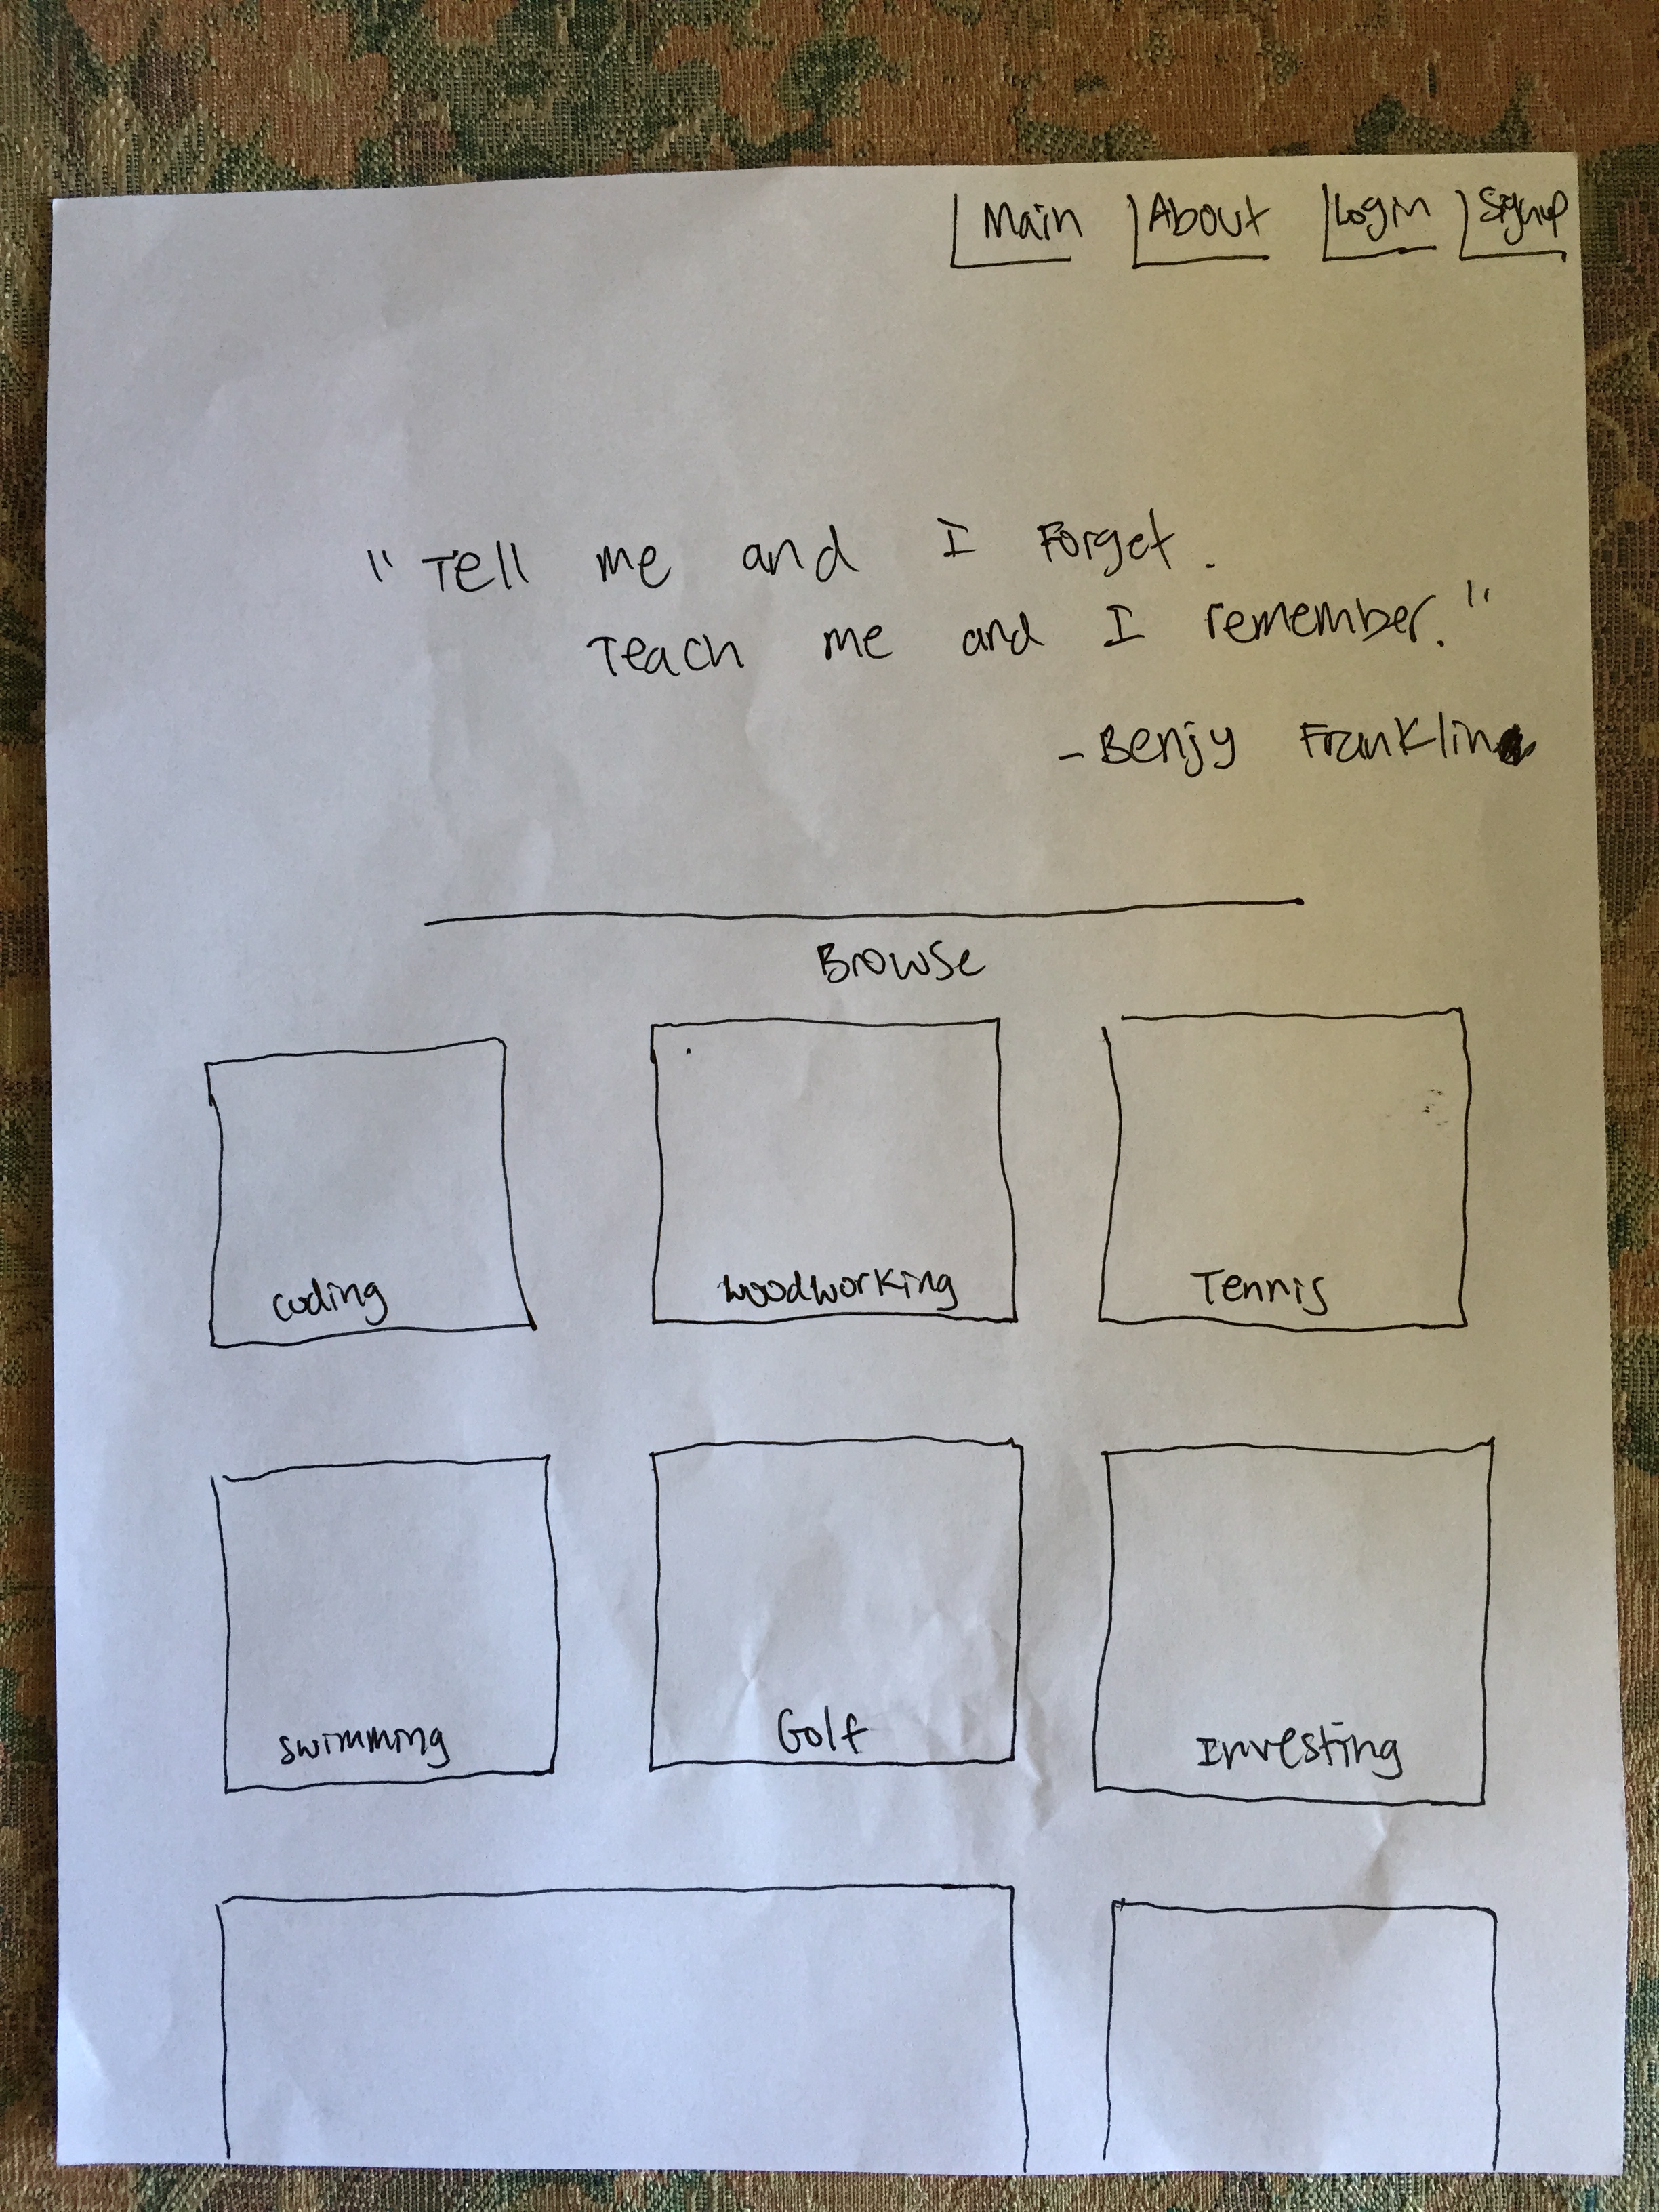 Main About Login Signup
"Tell me and I Forget.
Teach me and I remember."
- Benjy Franklin
Browse
coding woodworking Tennis
swimming Golf Investing